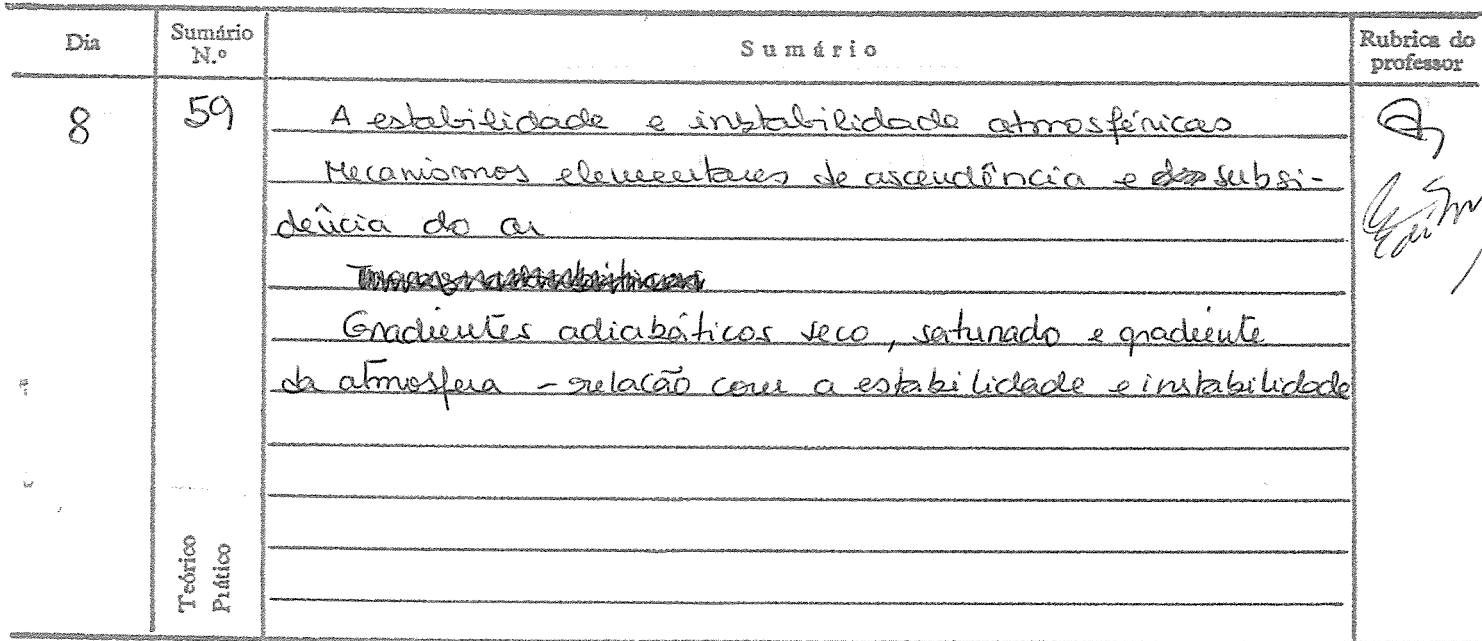 Dia Sumário N.º Sumário Rubrica do professor
8 59 A estabilidade e instabilidade atmosféricas
Mecanismos elementares de ascendência e subsi-
dência do ar
Gradientes adiabáticos seco, saturado e gradiente
da atmosfera - relação com a estabilidade e instabilidade
Teórico
Prático